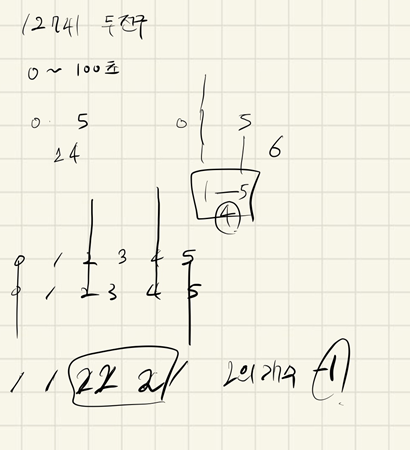 12개의 두전구
0 ~ 100초
0 5 0 5
24 6
1—5
4
0 1 2 3 4 5
0 1 2 3 4 5
1 1 2 2 2 1 2의개수 -1